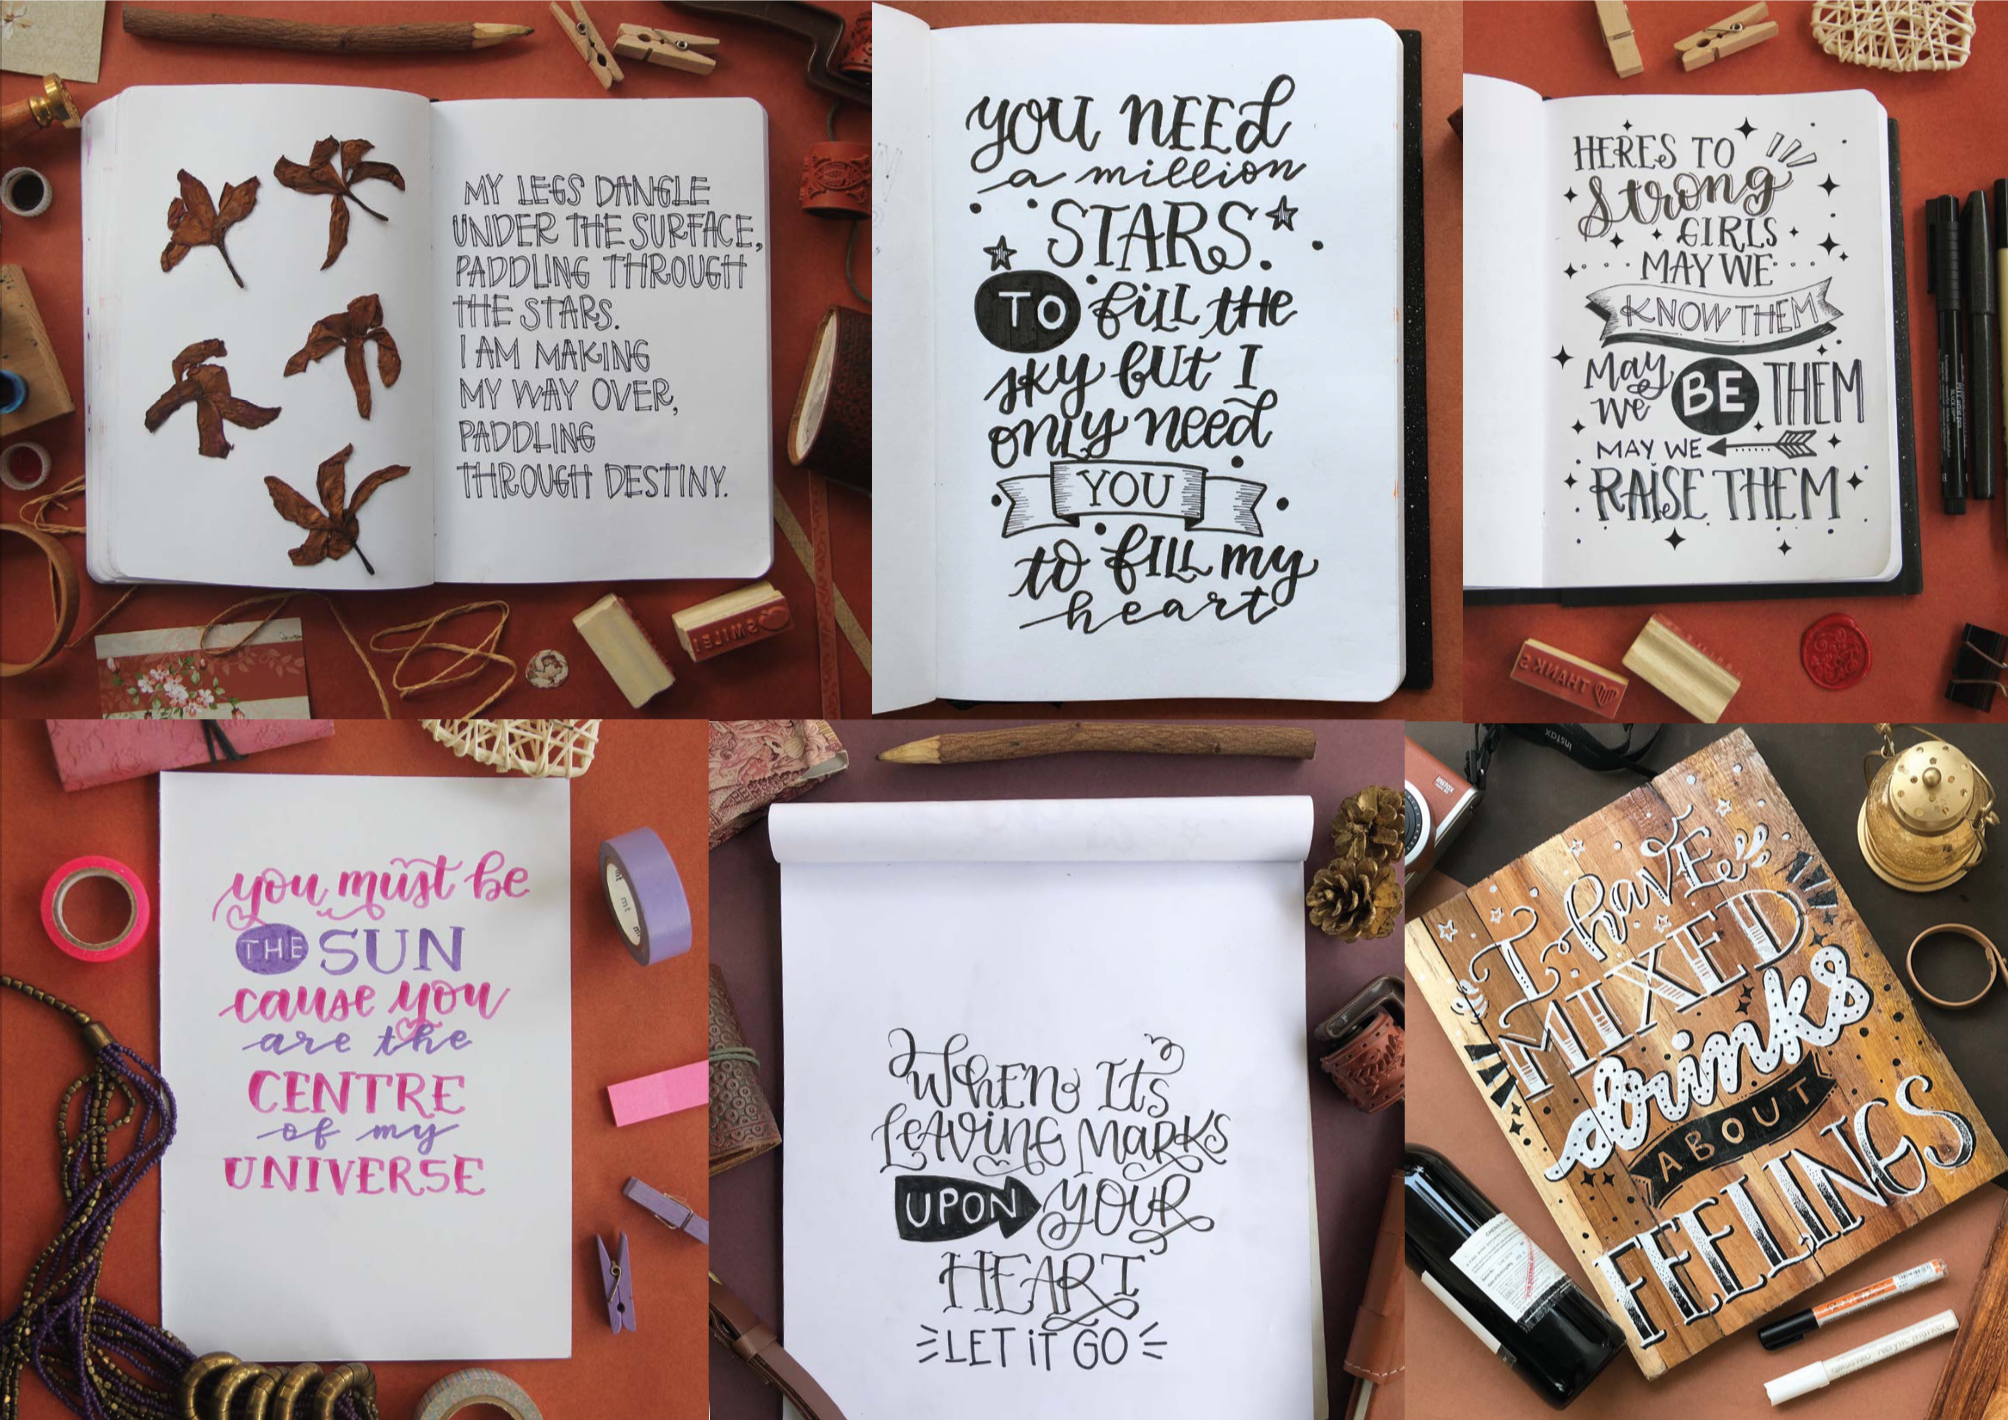 MY LEGS DANGLE
UNDER THE SURFACE,
PADDLING THROUGH
THE STARS.
I AM MAKING
MY WAY OVER,
PADDLING
THROUGH DESTINY.
SMILE!
YOU NEEd
a million
STARS.
TO fiLL the
sky bUt I
only need
YOU
to fiLL my
heart
HERES TO
Strong
GIRLS
MAY WE
KNOW THEM
May
we BE THEM
MAY WE
RAISE THEM
THANKS
you must be
THE SUN
cause you
are the
CENTRE
of my
UNIVERSE
mt
WHEN ITS
LEAVING MARKS
UPON YOUR
HEART
LET iT GO
instax
I havE
MIXED
drinks
ABOUT
FEELINGS